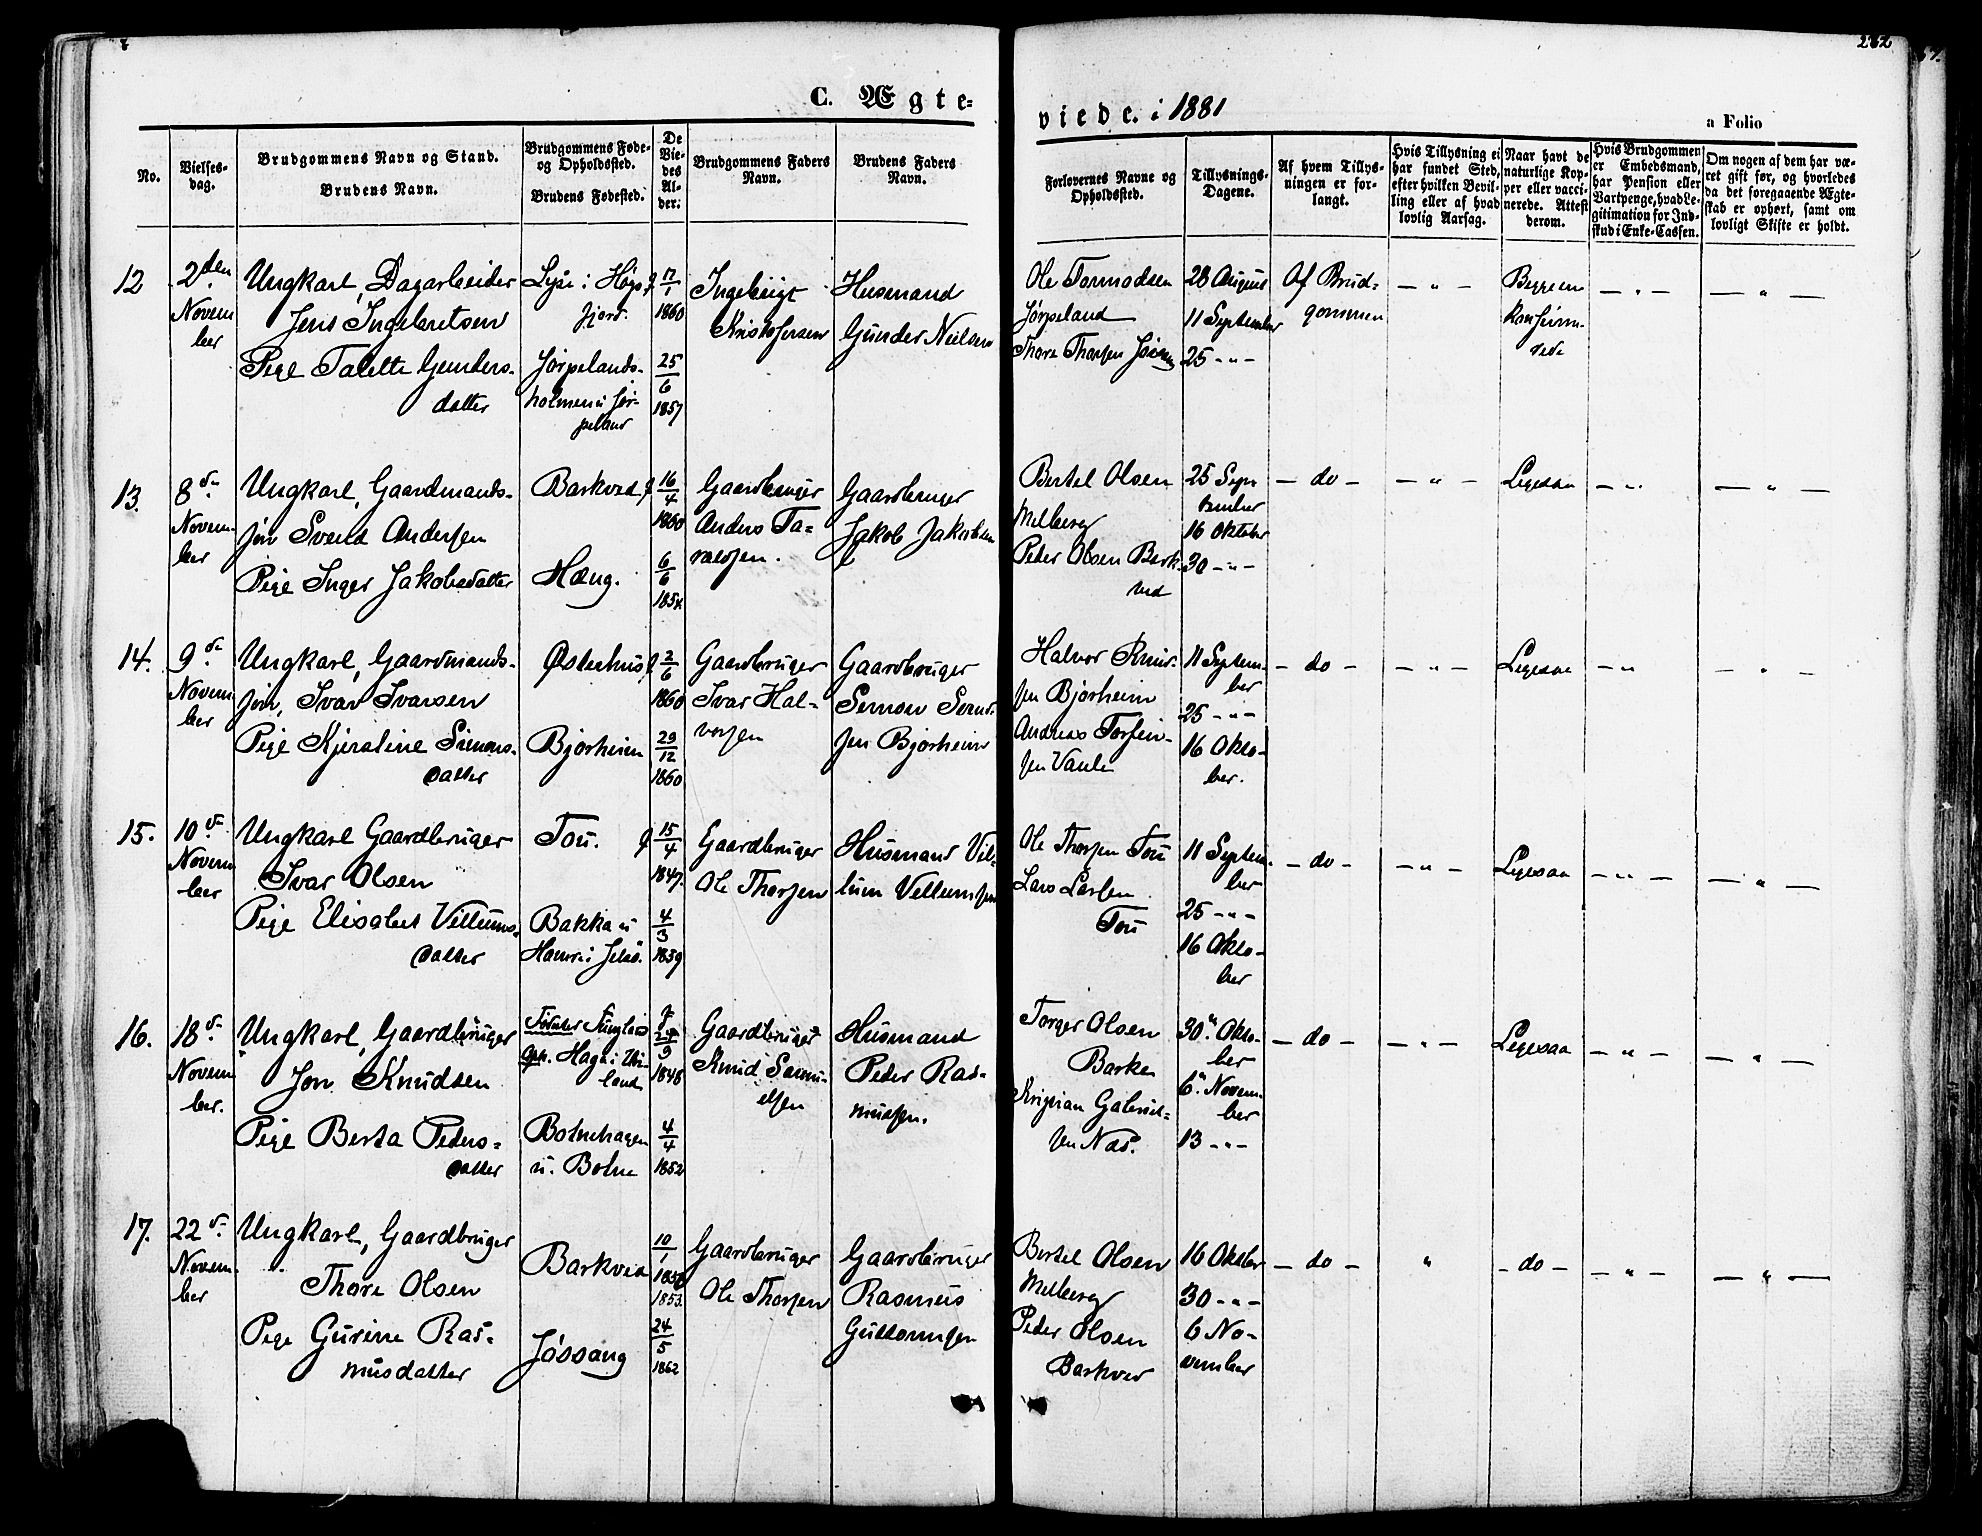 C. Ægte-
viede. i 1881
a Folio
No.
Vielses-
dag.
Brudgommens Navn og Stand.
Brudens Navn.
Brudgommens Føde-
og Opholdssted.
Brudens Fødested.
De
Vie-
des
Al-
der.
Brudgommens Faders
Navn.
Brudens Faders
Navn.
Forlovernes Navne og
Opholdssted.
Tillysnings-
Dagene.
Af hvem Tillys-
ningen er for-
langt.
Hvis Tillysning ei
har fundet Sted,
efter hvilken Bevil-
ling eller af hvad
lovlig Aarsag.
Naar havt de
naturlige Kop-
per eller vacci-
nerede. Attest
derom.
Hvis Brudgommen
er Embedsmand,
har Pension eller
Vartpenge, hvad Le-
gitimation for Ind-
skud i Enke-Cassen.
Om nogen af dem har væ-
ret gift før, og hvorledes
da det foregaaende Ægte-
skab er ophørt, samt om
lovligt Skifte er holdt.
12
2den
Novem
ber
Ungkarl, Dagarbeider
Jens Ingebretsen
Pige Talette Gunders-
datter
Lyse i Høgs
fjord.
Jørpelands-
holmen u Jør-
peland
17/1
1860
25/6
1857
Ingebrigt
Kristofersen
Husmand
Gunder Nielsen
Ole Tormodsen
Jørpeland
Thore Thorsen
28 August
11 September
25 - " -
Af Brud-
gommen
Begge
Konfirme-
rede
13.
8de
Novem-
ber
Ungkarl, Gaardmands-
søn Svend Andersen
Pige Inger Jakobsdatter
Barkved
Hæng.
16/4
1860
6/6
1854
Gaardbruger
Anders Ta-
raldsen.
Gaardbruger
Jakob Jakobsen
Bertel Olsen
Melberg
Peder Olsen Bark-
ved
25 Sep
tember
16 Oktober
30 - " -
- do -
Ligesaa
14.
9de
Novem
ber
Ungkarl, Gaardmands-
søn, Ivar Ivarsen
Pige Kjerstine Simons-
datter
Østerhus
Bjørheim
2/6
1860
29/12
1860
Gaardbruger
Ivar Hal-
vorsen
Gaardbruger
Simon Svend-
sen Bjørheim
Halvor Knud-
sen Bjørheim
Andreas Torfin-
sen Vaule
11 Septem-
ber
25 - " -
16 Okto-
ber.
- do -
Ligesaa
15.
10de
Novem
ber
Ungkarl Gaardbruger
Ivar Olsen
Pige Elisabet Villums-
datter
Tou.
Bakka u
Hamre i Jelsø.
15/4
1847.
4/3
1839
Gaardbruger
Ole Thorsen
Husmand Vil-
lum Villumsen
Ole Thorsen Tou
Lars Larsen
Tou
11 Septem-
ber
25 - " -
16 Okto-
ber
- do -
Ligesaa
16.
18de
Novem
ber.
Ungkarl, Gaardbruger
Jon Knudsen
Pige Berta Peders-
datter
Haga
land
Botnehagen
u. Botne
24/9
1846
4/4
1852
Gaardbruger
Knud Samu-
elsen
Husmand
Peder Ras-
mussen.
Torger Olsen
Barka
Kristian Gabriel-
sen Næs.
30te Okto-
ber
6te Novem-
ber
13 - " -
- do -
Ligesaa
17.
22de
Novem-
ber
Ungkarl, Gaardbruger
Thore Olsen
Pige Gurine Ras-
musdatter
Barkved
Jøssang
10/1
1853.
24/5
1862
Gaardbruger
Ole Thorsen
Gaardbruger
Rasmus
Guttormsen
Bertel Olsen
Melberg
Peder Olsen
Barkved
16 Oktober
30 - " -
6 No-
vember
- do -
- do -